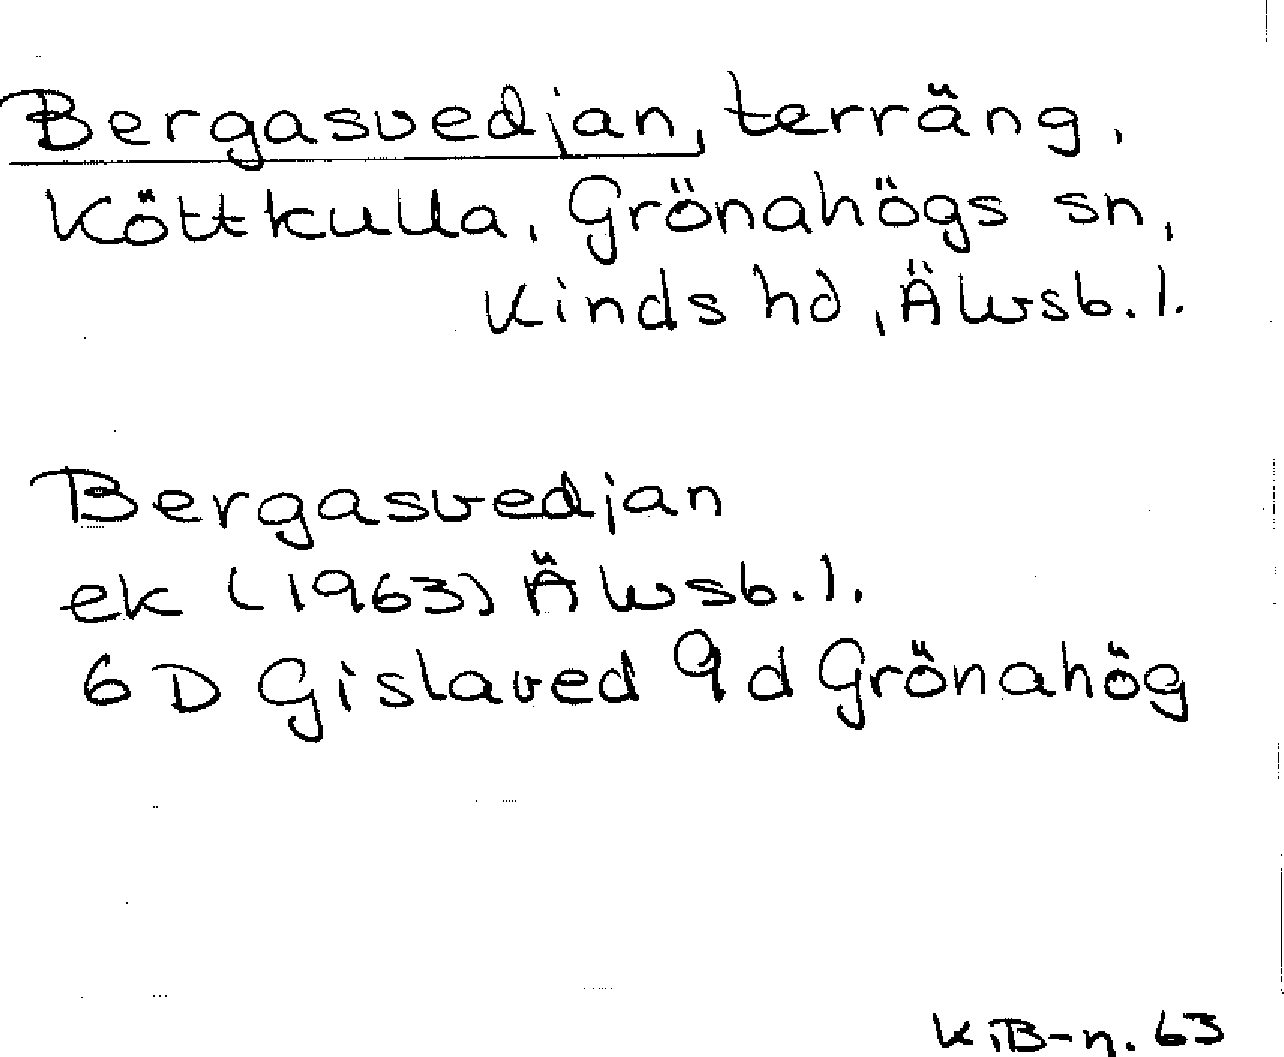 Bergasvedjan, terräng,
Köttkulla, Grönahögs sn,
Kinds hd, Älvsb. l.
Bergasvedjan
ek (1963) Älvsb. l.
6 D Gislaved 9 d Grönahög
KiB-n. 63